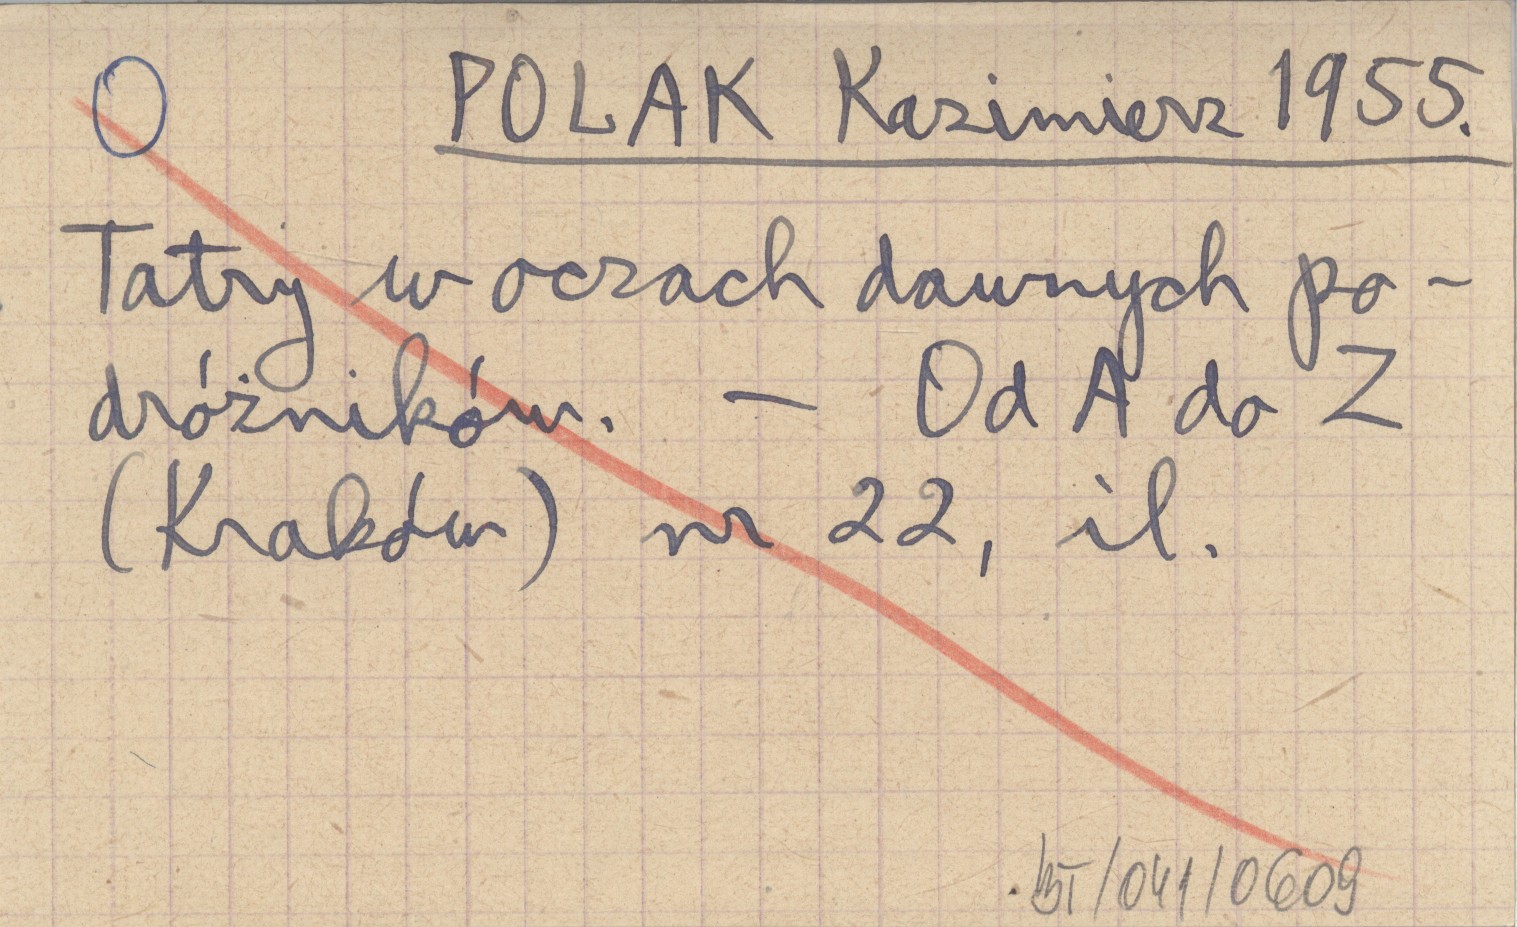 O POLAK Kazimierz 1955.
Tatry w oczach dawnych po-
dróżników. — Od A do Z
(Kraków) nr 22, il.
BT/041/0609